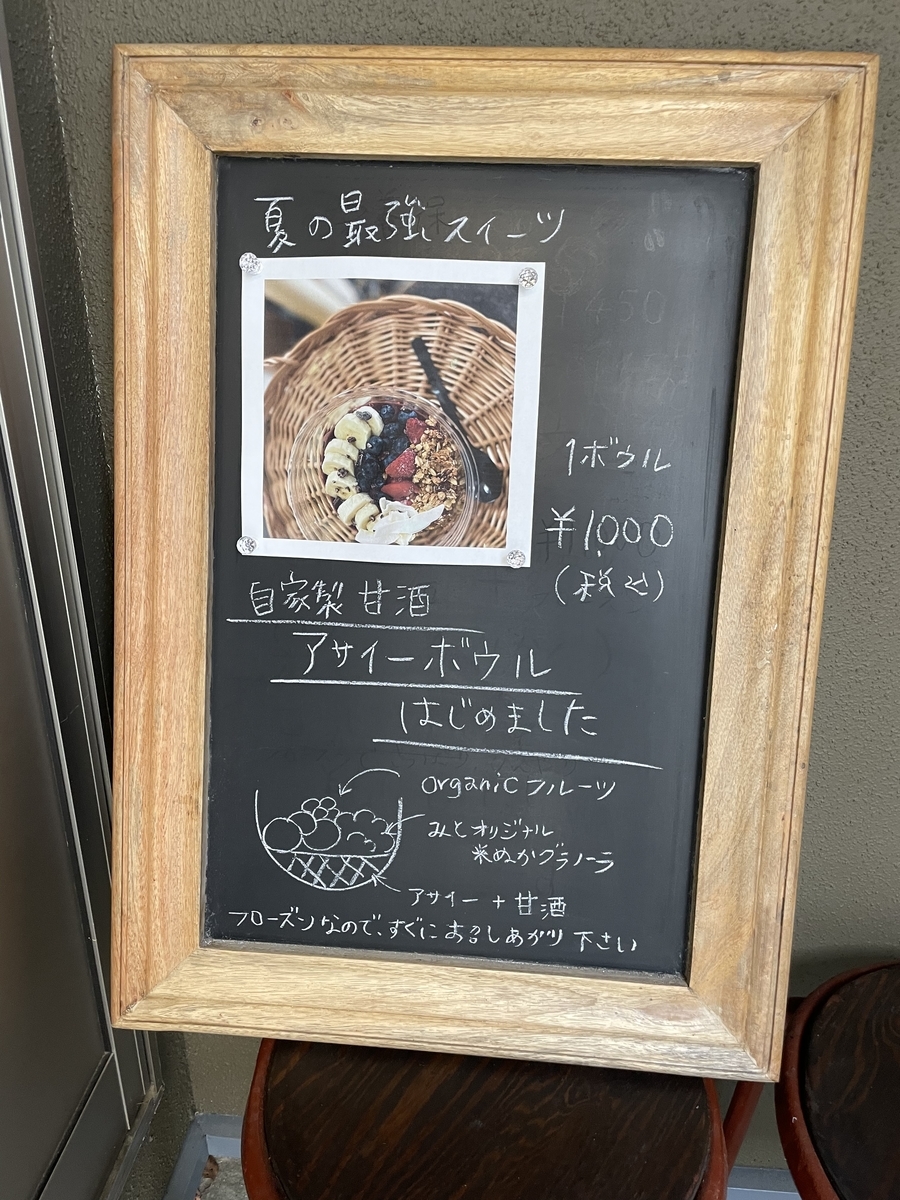 夏の最強スイーツ
1ボウル
¥1,000
(税込)
自家製 甘酒
アサイーボウル
はじめました
organicフルーツ
みとオリジナル
米ぬかグラノーラ
アサイー+甘酒
フローズンなので、すぐにお召しあがり下さい